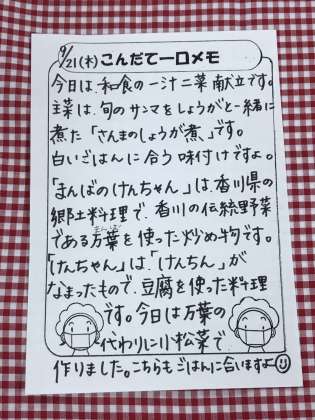 9/21(木)こんだて一口メモ
今日は、和食の一汁二菜献立です。
主菜は、旬のサンマをしょうがと一緒に
煮た「さんまのしょうが煮」です。
白いごはんに合う味付けですよ。
「まんばのけんちゃん」は、香川県の
郷土料理で、香川の伝統野菜
まんば
である万葉を使った炒め物です。
「けんちゃん」は「けんちん」が
なまったもので、豆腐を使った料理
です。今日は万葉の
代わりに小松菜で
作りました。こちらもごはんに合いますよ